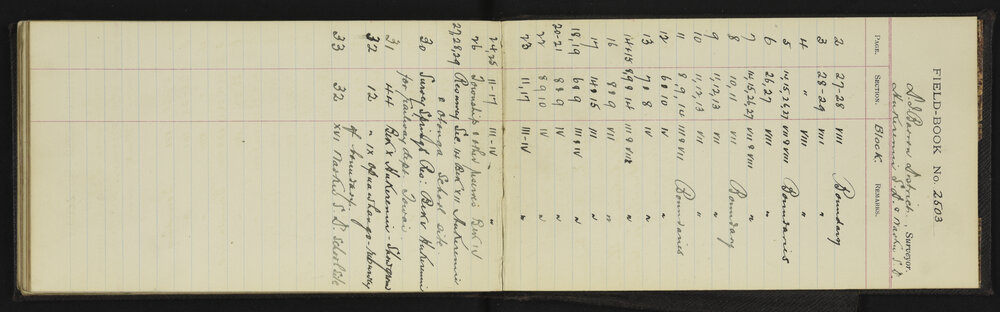 FIELD-BOOK No. 2503
District, Surveyor.
Hukerenui S.D. &
PAGE. SECTION. Block. REMARKS.
2 27-28 VIII Boundary
3 28-29 VIII "
4 " VIII "
5 14, 15, 26, 27 VII & VIII Boundaries
6 26, 27 VIII "
7 14, 15, 26, 27 VII & VIII "
8 10, 11 VII Boundary
9 11, 12, 13 VII "
10 11, 12, 13 VII "
11 8, 9, 10 III & VII Boundaries
12 6 & 10 IV "
13 7 & 8 IV "
14 & 15 8, 9 & 14 III & VII "
16 8 & 9 VIII "
17 14 & 15 III "
18, 19 6 & 9 III & IV "
20-21 8 & 9 IV "
22 8 9 10 IV "
23 11, 17 III-IV "
24, 25 11-17 III-IV "
26 Township & other Blk IV
& Otonga School site
27, 28, 29 Sec. 14 Blk VII Hukerenui
30 Survey Springs Res: Blk V Hukerenui
for Railway Dept. Towai
31 44 Blk V Hukerenui -
32 12 " IX Opuawhanga -
of boundary
33 32 XVI S.D. School Site